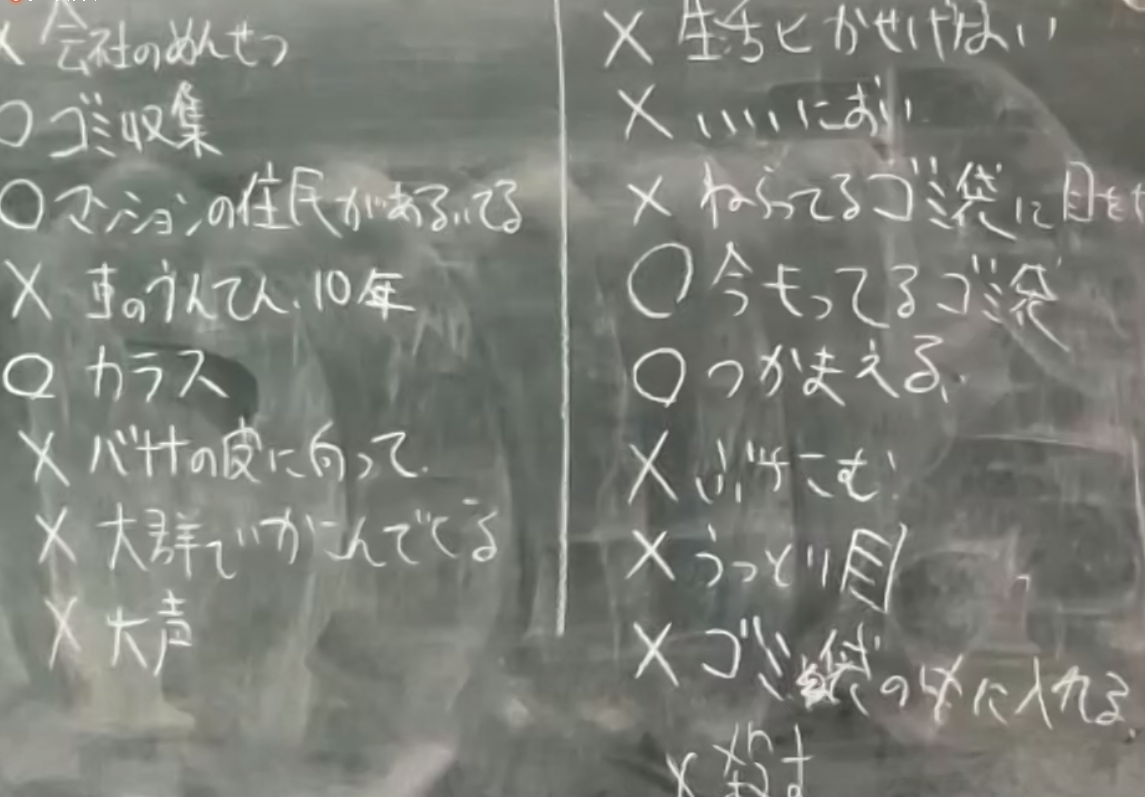 X 会社のめんせつ
○ ゴミ収集
○ マンションの住民があるいてる
X 車のうんてん、10年
○ カラス
X バサの皮に向って
X 大群でかこんででくる
X 大声
X 生活ヒかせげない
X いいにおい
X ねらってるゴミ袋に目を
○ 今もってるゴミ袋
○ つかまえる、
X ぶつけこむ
X うっとり目
X ゴミ袋の中に入れる、
X 殺す